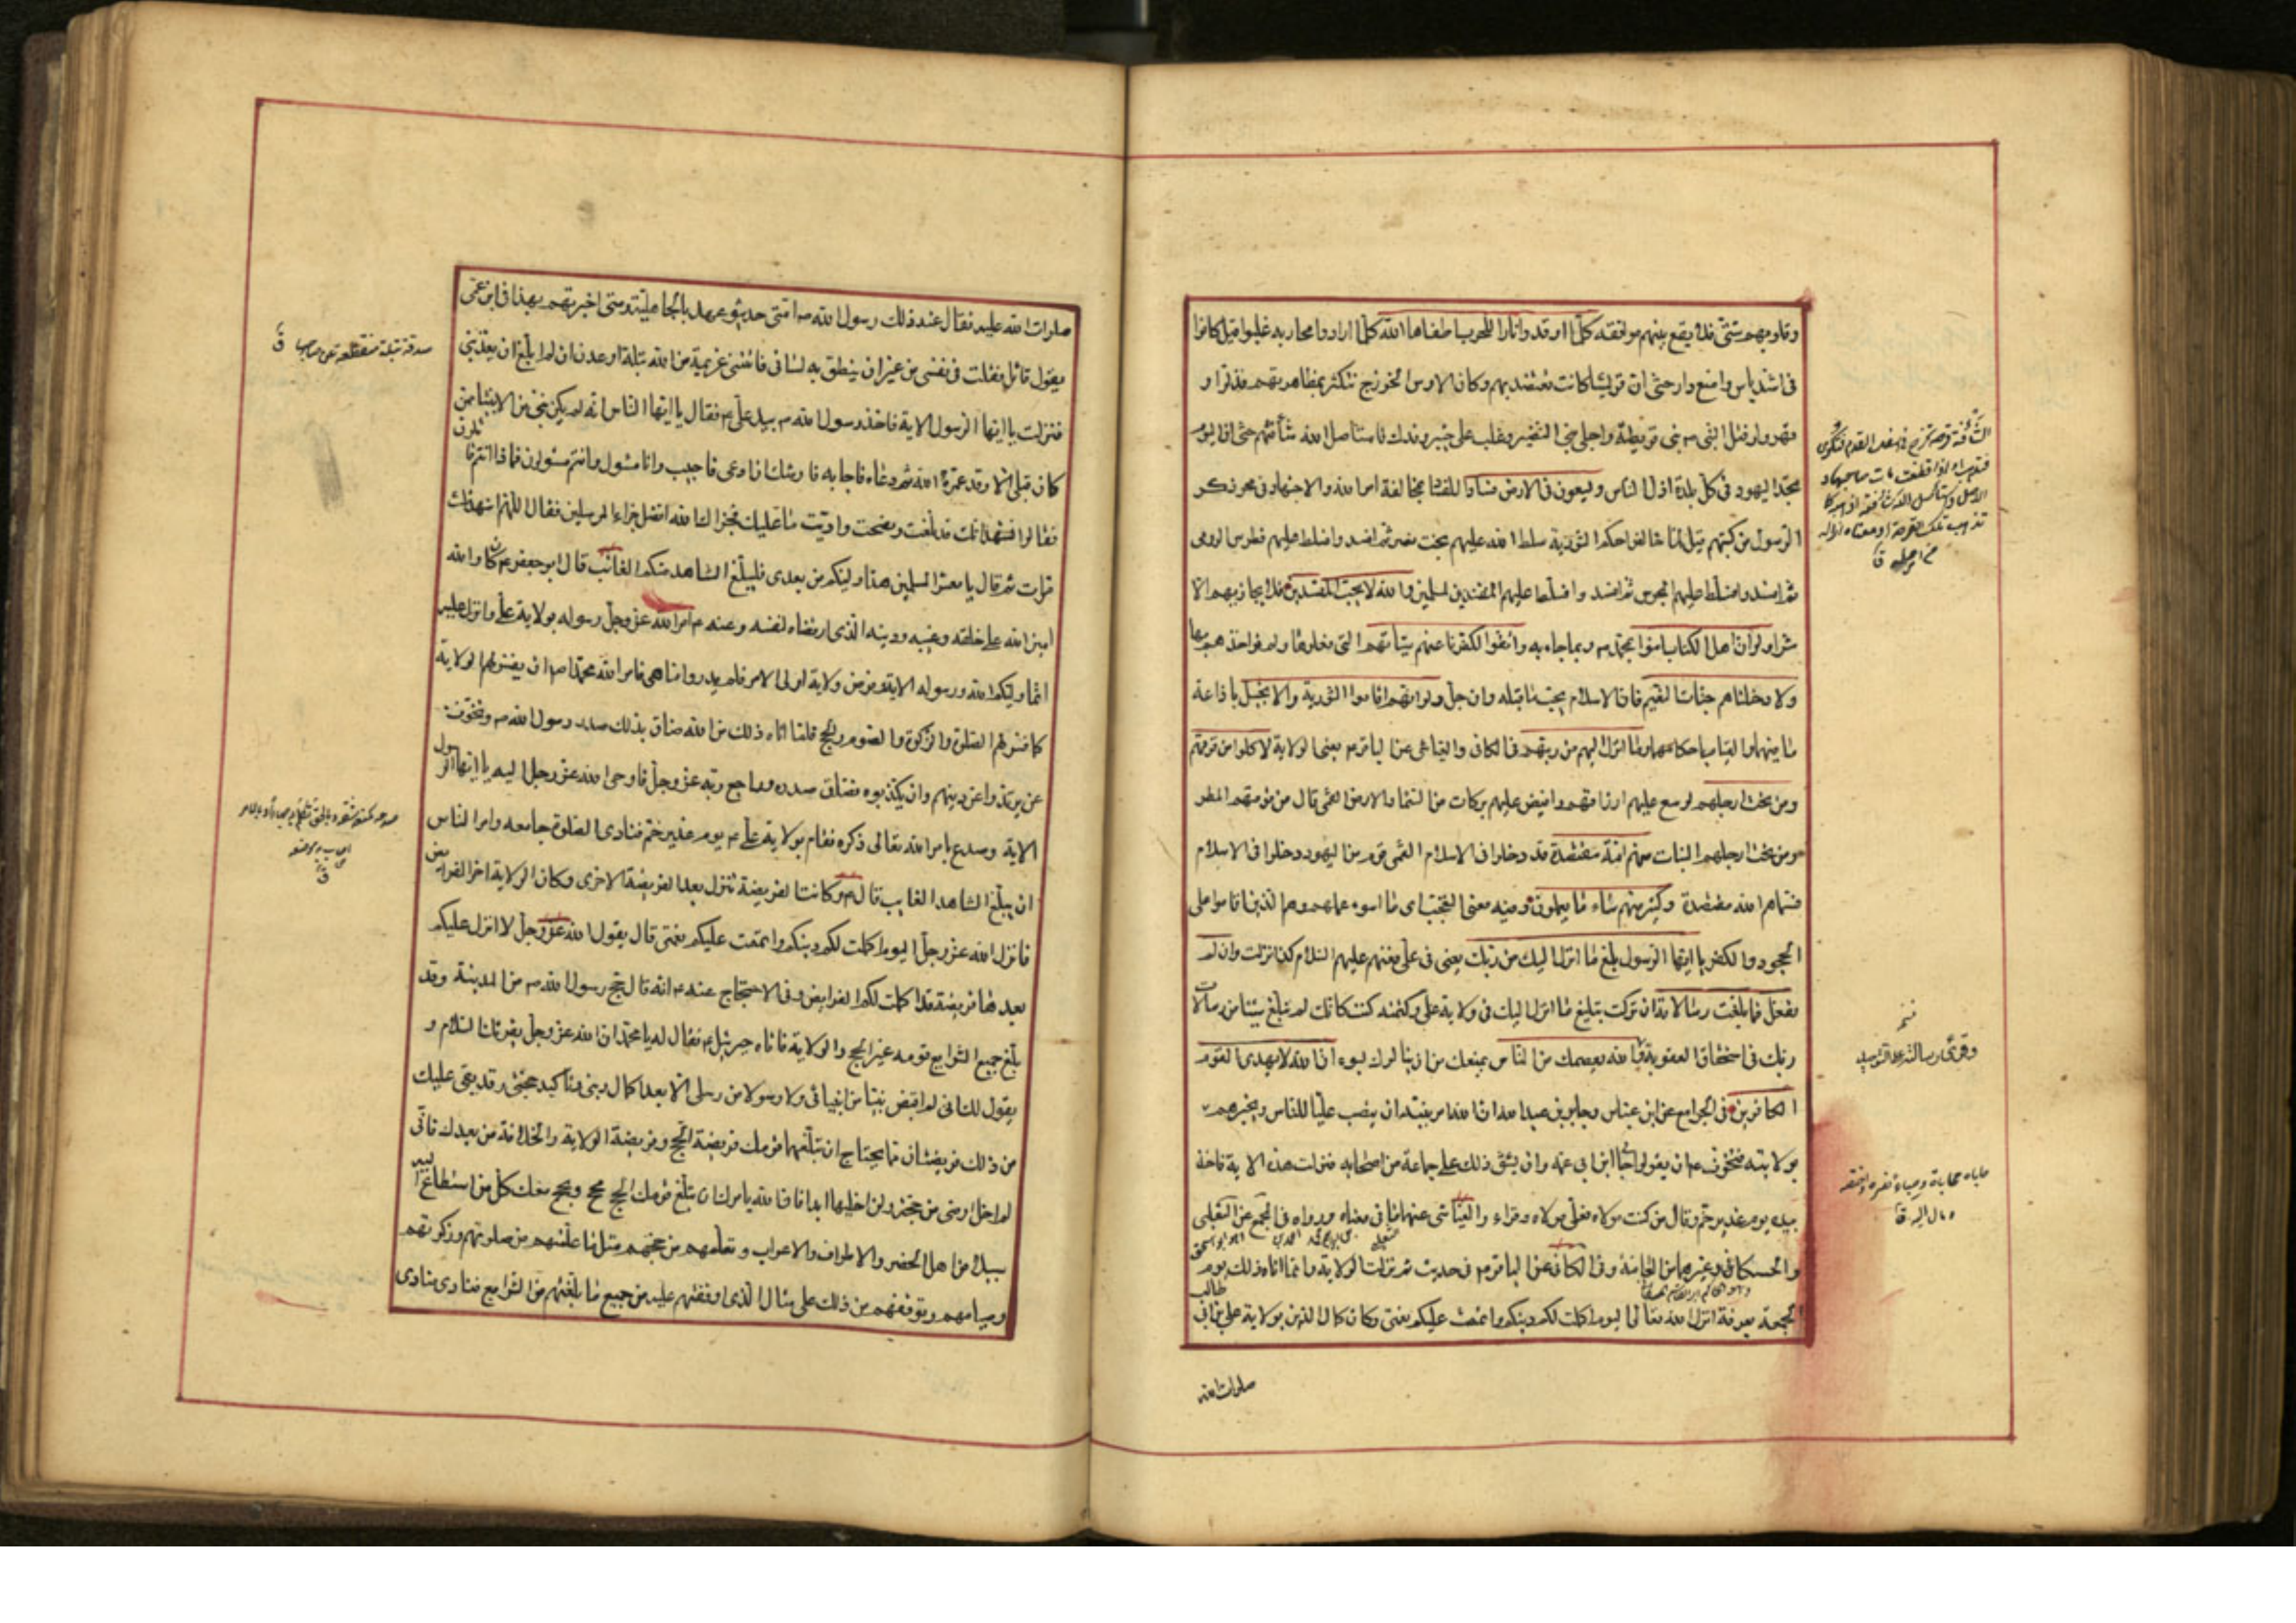 وقلوبهم شتّى فلا يقع بينهم موافقه كلّما اوقدوا نارا للحرب اطفاها الله كلّما ارادوا محاربه غلبوا قيل كانوا
فى اشد باس وامنع دار حتى ان قريشا كانت تعتضد بهم وكان الاوس والخزرج تتكثر بمظاهرتهم فذلّوا و
قهروا وقتل النبى ص بنى قريظة واجلى بنى النضير وغلب على خيبر وفدك فاستاصل الله شأفتهم حتى ان اليوم
تجد اليهود فى كلّ بلدة اذلّ الناس ويسعون فى الارض فسادا للفساد بمخالفة امر الله والاجتهاد فى محو ذكر
الرسول من كتبهم قيل لمّا خالفوا حكم التورية سلط الله عليهم بخت نصر ثم افسدوا فسلط عليهم فطرس الرومى
ثم افسدوا فسلّط عليهم المجوس ثم افسدوا فسلّط عليهم المسلمين والله لا يحبّ المفسدين فلا يجازيهم الّا
شرا ولو انّ اهل الكتاب امنوا بمحمّد ص وبما جاء به واتقوا لكفّرنا عنهم سيّئاتهم التى فعلوها ولم نؤاخذهم بها
ولادخلناهم جنّات النعيم فان الاسلام يجبّ ما قبله وان جلّ ولو انّهم اقاموا التورية والانجيل باذاعة
ما فيهما والقيام باحكامهما وما انزل اليهم من ربّهم فى الكافى والعياشى عن الباقر م يعنى الولاية لاكلوا من فوقهم
ومن تحت ارجلهم لوسع عليهم ارزاقهم وافيض عليهم بركات من السّماء والارض القمّى قال من فوقهم المطر
ومن تحت ارجلهم النبات منهم امّة مقتصدة قد دخلوا فى الاسلام القمى قوم من اليهود دخلوا فى الاسلام
فسمّاهم الله مقتصدة وكثير منهم ساء ما يعملون وفيه معنى التعجّب اى ما اسوء عملهم وهم الّذين اقاموا على
الجحود والكفر يا ايّها الرّسول بلّغ ما انزل اليك من ربّك يعنى فى علىّ فعنهم عليهم السّلام كذا نزلت وان لم
تفعل فما بلّغت رسالاته ان تركت تبليغ ما انزل اليك فى ولاية على وكتمته كنت كانّك لم تبلّغ شيئا من رسالات
ربّك فى استحقاق العقوبة والله يعصمك من النّاس يمنعك من ان ينالوك بسوء انّ الله لا يهدى القوم
الكافرين فى الجوامع عن ابن عبّاس وجابر بن عبد الله انّ الله امر نبيّه ان ينصب عليّا للناس ويخبرهم
بولايته فتخوّف م ان يقولوا حابى ابن عمّه وان يشقّ ذلك على جماعة من اصحابه فنزلت هذه الاية فاخذ
بيده يوم غدير خمّ وقال من كنت مولاه فعلىّ مولاه وقراء والعيّاشى عنهما ما فى معناه ورواه فى المجمع عن الثعلبى
والحسكانى وغيرهما من العامّة وفى الكافى عن الباقر م فى حديث ثم نزلت الولاية وانما اتاه ذلك يوم
الجمعة بعرفة انزل الله تعالى اليوم اكملت لكم دينكم واتممت عليكم نعمتى وكان كمال الدّين بولاية على بن ابى
طالب
صلوات الله
نسخه
صلوات الله عليه فقال عند ذلك رسول الله ص امّتى حديثو عهد بالجاهليّة ومتى اخبرتهم بهذا فى ابن عمّى
يقول قائل فقلت فى نفسى من غير ان ينطق به لسانى فاتتنى عزيمة من الله بتلة اوعدنى ان لم ابلّغ ان يعذّبنى
فنزلت يا ايّها الرّسول الاية فاخذ رسول الله ص بيد علىّ م فقال يا ايّها النّاس انّه لم يكن نبىّ من الانبياء ممّن
كان قبلى الّا وقد عمّره الله ثم دعاه فاجابه فاوشك ان ادعى فاجيب وانا مسئول وانتم مسئولون فماذا انتم قائلون
فقالوا نشهد انّك قد بلّغت ونصحت وادّيت ما عليك فجزاك الله افضل جزاء المرسلين فقال اللّهم اشهد ثلث
مرّات ثم قال يا معشر المسلمين هذا وليّكم من بعدى فليبلّغ الشّاهد منكم الغائب قال ابو جعفر م كان والله
امين الله على خلقه وغيبه ودينه الّذى ارتضاه لنفسه وعنه م امر الله عزّ وجلّ رسوله بولاية علىّ وانزل عليه
انّما وليّكم الله ورسوله الاية وفرض ولاية اولى الامر فلم يدروا ما هى فامر الله محمّدا ص ان يفسّر لهم الولاية
كما فسّر لهم الصّلوة والزّكوة والصّوم والحجّ فلمّا اتاه ذلك من الله ضاق بذلك صدر رسول الله ص وتخوّف
عن يرتدّوا عن دينهم وان يكذّبوه فضاق صدره وراجع ربّه عزّ وجلّ فاوحى الله عزّ وجلّ اليه يا ايّها الرّسول
الاية وصدع بامر الله تعالى ذكره فقام بولاية علىّ م يوم غدير خمّ فنادى الصّلوة جامعه وامر النّاس
ان يبلّغ الشّاهد الغايب قال م وكانت الفريضة تنزل بعد الفريضة الاخرى وكان الولاية اخر الفرايض
فانزل الله عزّ وجلّ اليوم اكملت لكم دينكم واتممت عليكم نعمتى قال يقول الله عزّ وجلّ لا انزل عليكم
بعد هذا فريضة قد اكملت لكم الفرايض وفى الاحتجاج عنه م انّه قال حجّ رسول الله ص من المدينة وقد
بلّغ جميع الشّرايع قومه غير الحجّ والولاية فاتاه جبرئيل م فقال له يا محمّد انّ الله عزّ وجلّ يقرئك السّلام و
يقول لك انّى لم اقبض نبيّا من انبيائى ولا رسولا من رسلى الّا بعد اكمال دينى وتاكيد حجّتى وقد بقى عليك
من ذلك فريضتان ممّا يحتاج ان تبلّغهما قومك فريضة الحجّ وفريضة الولاية والخلافة من بعدك فانّى
لم اخل ارضى من حجّة ولن اخليها ابدا فانّ الله يامرك ان تبلّغ قومك الحجّ تحجّ ويحجّ معك كلّ من استطاع اليه
سبيلا من اهل الحضر والاطراف والاعراب وتعلّمهم من حجّهم مثل ما علّمتهم من صلوتهم وزكوتهم
وصيامهم وتوقفهم من ذلك على مثال الّذى اوقفتهم عليه من جميع ما بلّغتهم من الشّرايع فنادى منادى